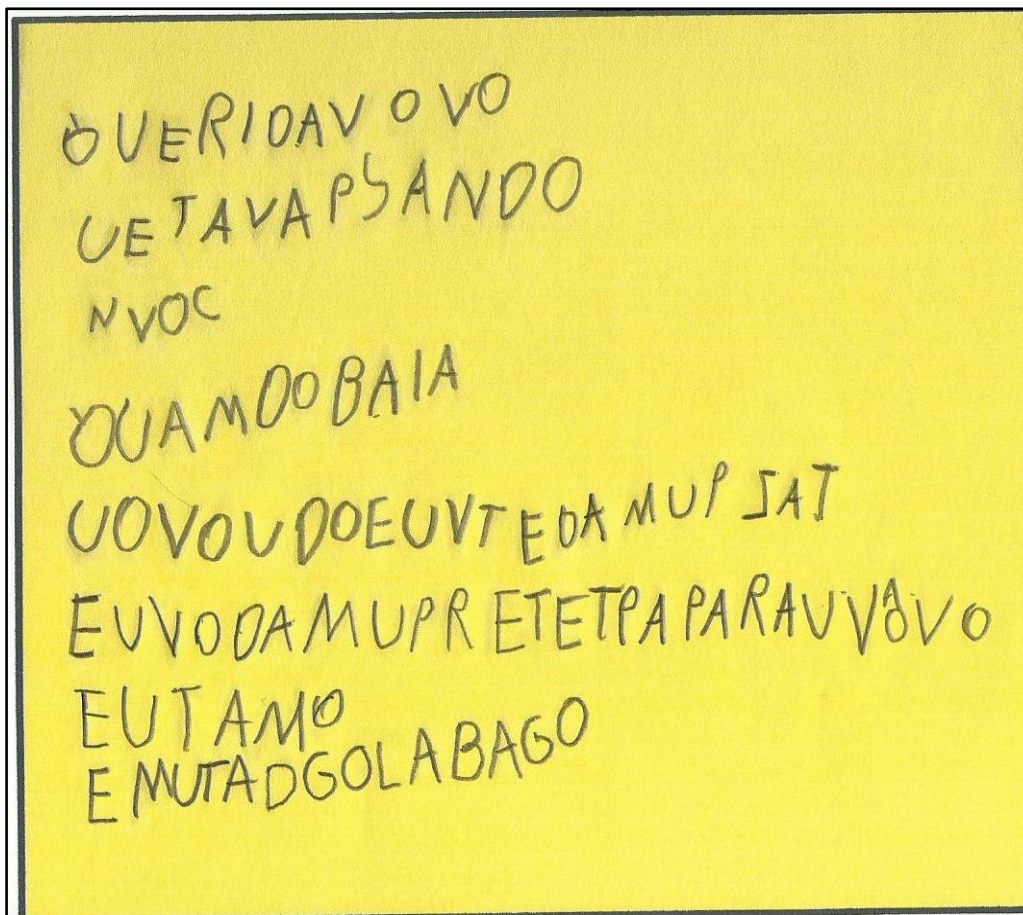 QUERIDAV O VO
UETAVAPSANDO
NVOC
QUAMDOBAIA
UOVOUDOEUVTEDAMUPSAT
EUVODAMUPRETETPAPARAUVÔVO
EUTAMO
EMUTADGOLABAGO